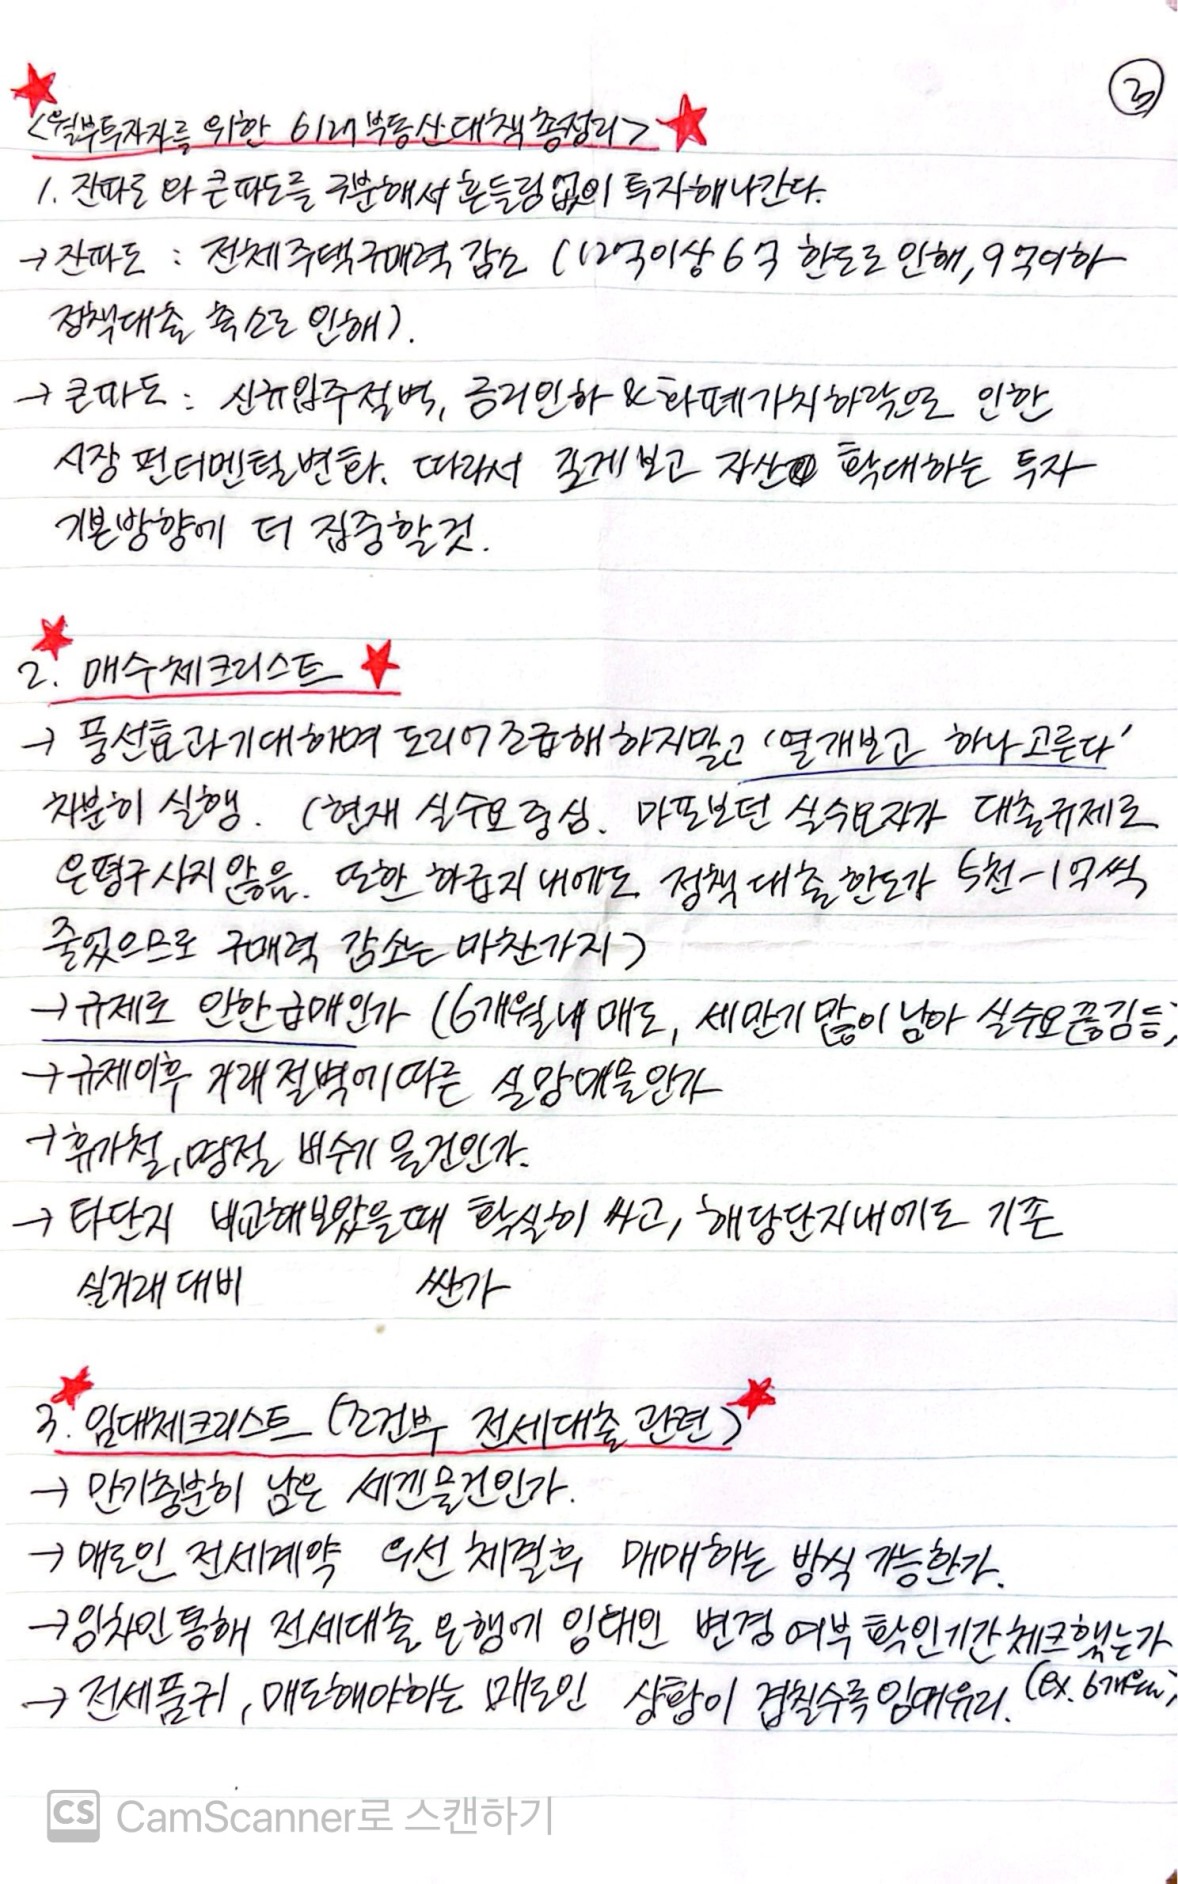 ③
<월부투자자를 위한 612 부동산대책총정리>
1. 잔파도와 큰파도를 구분해서 흔들림없이 투자해나간다.
→ 잔파도 : 전체주택구매력 감소 (12억이상 6억 한도로 인해, 9억이하
정책대출 축소로 인해).
→ 큰파도 : 신규입주절벽, 금리인하 & 화폐가치하락으로 인한
시장 펀더멘털변화. 따라서 길게보고 자산 확대하는 투자
기본방향에 더 집중할것.
2. 매수체크리스트
→ 풍선효과기대하며 도리어 조급해하지말고 '열개보고 하나고른다'
차분히 실행. (현재 실수요중심. 마포보던 실수요자가 대출규제로
은평구사지 않음. 또한 하급지내에도 정책대출한도가 5천-1억씩
줄었으므로 구매력 감소는 마찬가지)
→ 규제로 인한 급매인가 (6개월내 매도, 세만기 많이남아 실수요끊김등)
→ 규제이후 거래절벽에따른 실망매물인가
→ 휴가철, 명절 비수기 물건인가.
→ 타단지 비교해보았을때 확실히 싸고, 해당단지내에도 기존
실거래대비 싼가
3. 임대체크리스트 (조건부 전세대출관련)
→ 만기충분히 남은 세낀물건인가.
→ 매도인 전세계약 우선 체결후 매매하는 방식 가능한가.
→ 임차인통해 전세대출 은행에 임대인 변경 여부 확인기간체크했는가
→ 전세품귀, 매도해야하는 매도인 상황이 겹칠수록임대유리. (ex. 6개월내)
CS CamScanner로 스캔하기